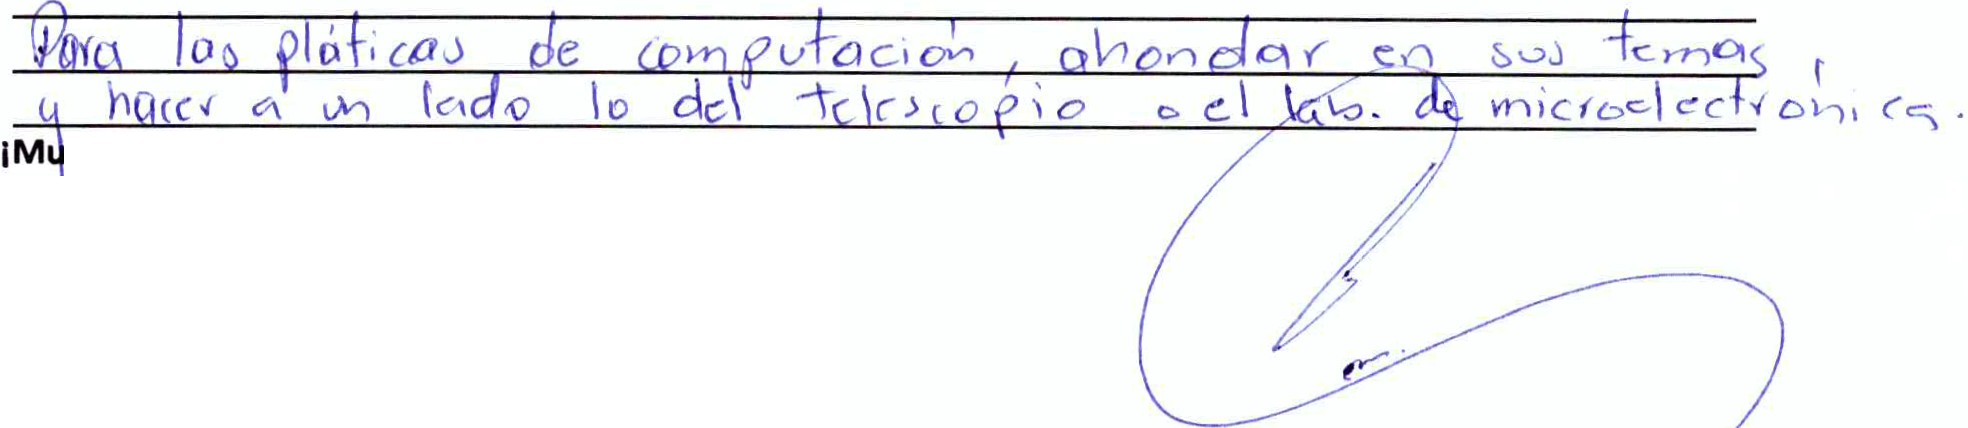 Para las pláticas de computación, ahondar en sus temas,
y hacer a un lado lo del telescopio o el lab. de microelectrónica.
¡Mu